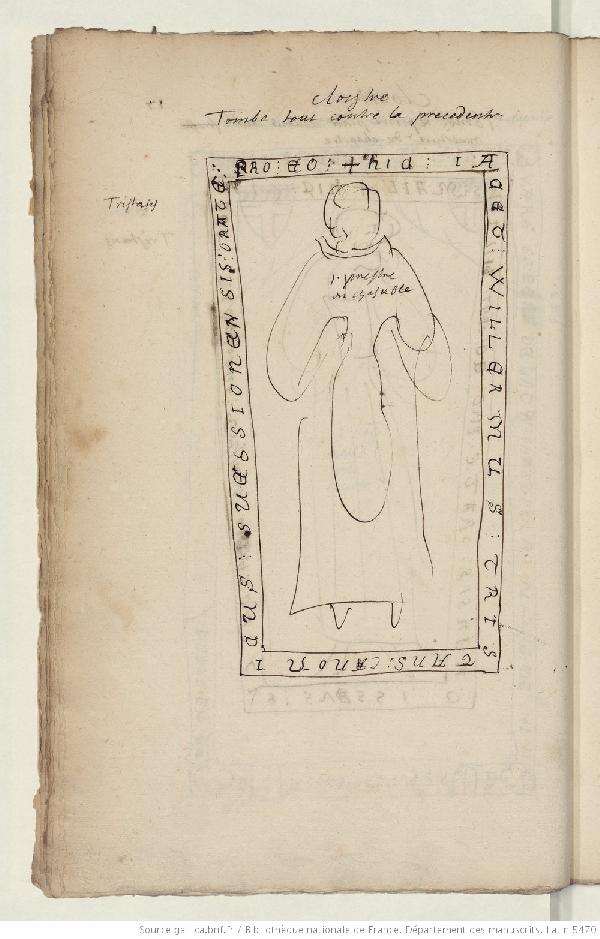 cloistre
Tombe tout contre la precedente
Tristans
+ hIC : IA
CET : WILLERMUS : TRIS
TANS : CANONI
CUS : SUESSIONENSIS : ORATE :
PRO : EO :
1. prestre
en chasuble
Source gallica.bnf.fr / Bibliothèque nationale de France. Département des manuscrits. Latin 5470